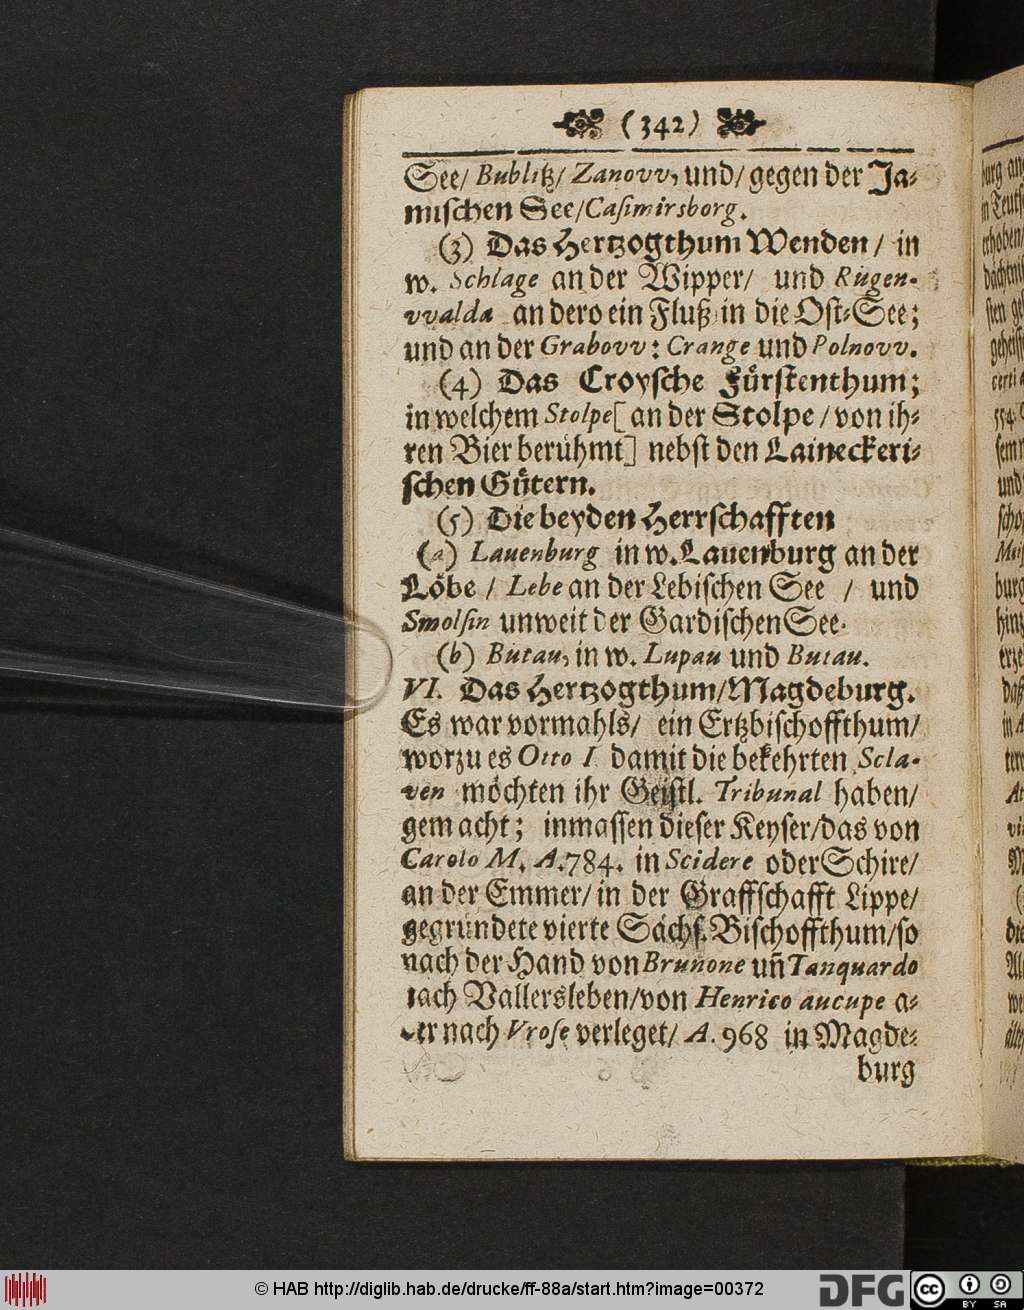 (342)
See/ Bublitz/ Zanovv, und/ gegen der Ja-
mischen See/ Casimirsborg.
(3) Das Hertzogthum Wenden / in
w. Schlage an der Wipper/ und Rügen-
vvalda an dero ein Fluß in die Ost-See;
und an der Grabovv: Crange und Polnovv.
(4) Das Croysche Fürstenthum;
in welchem Stolpe [ an der Stolpe / von ih-
ren Bier berühmt] nebst den Laineckeri-
schen Gütern.
(5) Die beyden Herrschafften
(a) Lauenburg in w. Lauenburg an der
Löbe / Lebe an der Lebischen See / und
Smolsin unweit der Gardischen See.
(b) Butau, in w. Lupau und Butau.
VI. Das Hertzogthum/ Magdeburg.
Es war vormahls/ ein Ertzbischoffthum/
worzu es Otto I damit die bekehrten Scla-
ven möchten ihr Geistl. Tribunal haben/
gemacht; inmassen dieser Keyser/ das von
Carolo M. A. 784. in Scidere oder Schire/
an der Emmer/ in der Graffschafft Lippe/
gegründete vierte Sächs. Bischoffthum/ so
nach der Hand von Brunone uñ Tanquardo
nach Vallersleben/ von Henrico aucupe a-
ber nach Vrose verleget/ A. 968 in Magde-
burg
© HAB http://diglib.hab.de/drucke/ff-88a/start.htm?image=00372
DFG
cc BY SA